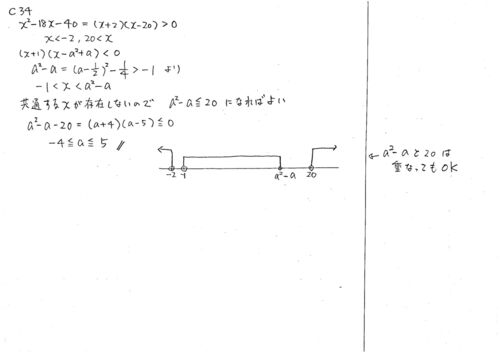 C34
x²-18x-40=(x+2)(x-20)>0
x<-2, 20<x
(x+1)(x-a²+a)<0
a²-a=(a-1/2)²-1/4>-1 より
-1<x<a²-a
共通するxが存在しないので a²-a≦20 になればよい
a²-a-20=(a+4)(a-5)≦0
-4≦a≦5 //
-2 -1 a²-a 20
←a²-aと20は
重なってもOK